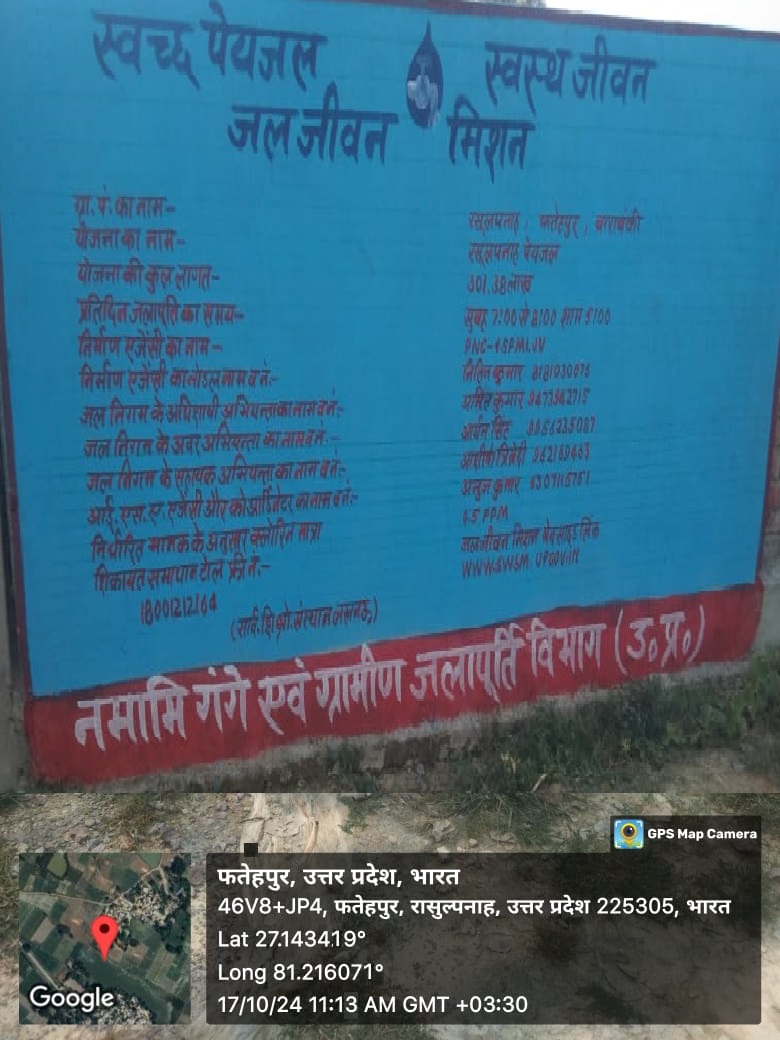 स्वच्छ पेयजल स्वस्थ जीवन
जल जीवन मिशन
ग्रा. पं. का नाम- रसूलपनाह, फतेहपुर, बाराबंकी
योजना का नाम- रसूलपनाह पेयजल
योजना की कुल लागत- 301.38 लाख
प्रतिदिन जलापूर्ति का समय- सुबह 7:00 से 8:00 शाम 5:00
निर्माण एजेंसी का नाम- PNC-
निर्माण एजेंसी का नोडल नाम व नं:- नितिन कुमार
जल निगम के अधिशाषी अभियन्ता का नाम व नं:- अमित कुमार
जल निगम के अवर अभियन्ता का नाम व नं:-
जल निगम के सहायक अभियन्ता का नाम व नं:- आशीष त्रिवेदी
आई. एस. ए. एजेंसी और कोआर्डिनेटर का नाम व नं:- अनुज कुमार
निर्धारित मानक के अनुसार क्लोरिन मात्रा PPM
शिकायत समाधान टोल फ्री नं:- जल जीवन मिशन वेबसाइड लिंक
18001212164 WWW.SWSM.UPGOV.IN
(सार्व. शिक्षो. संस्थान लखनऊ)
नमामि गंगे एवं ग्रामीण जलापूर्ति विभाग (उ०प्र०)
GPS Map Camera
फतेहपुर, उत्तर प्रदेश, भारत
46V8+JP4, फतेहपुर, रासुल्पनाह, उत्तर प्रदेश 225305, भारत
Lat 27.143419°
Long 81.216071°
17/10/24 11:13 AM GMT +03:30
Google